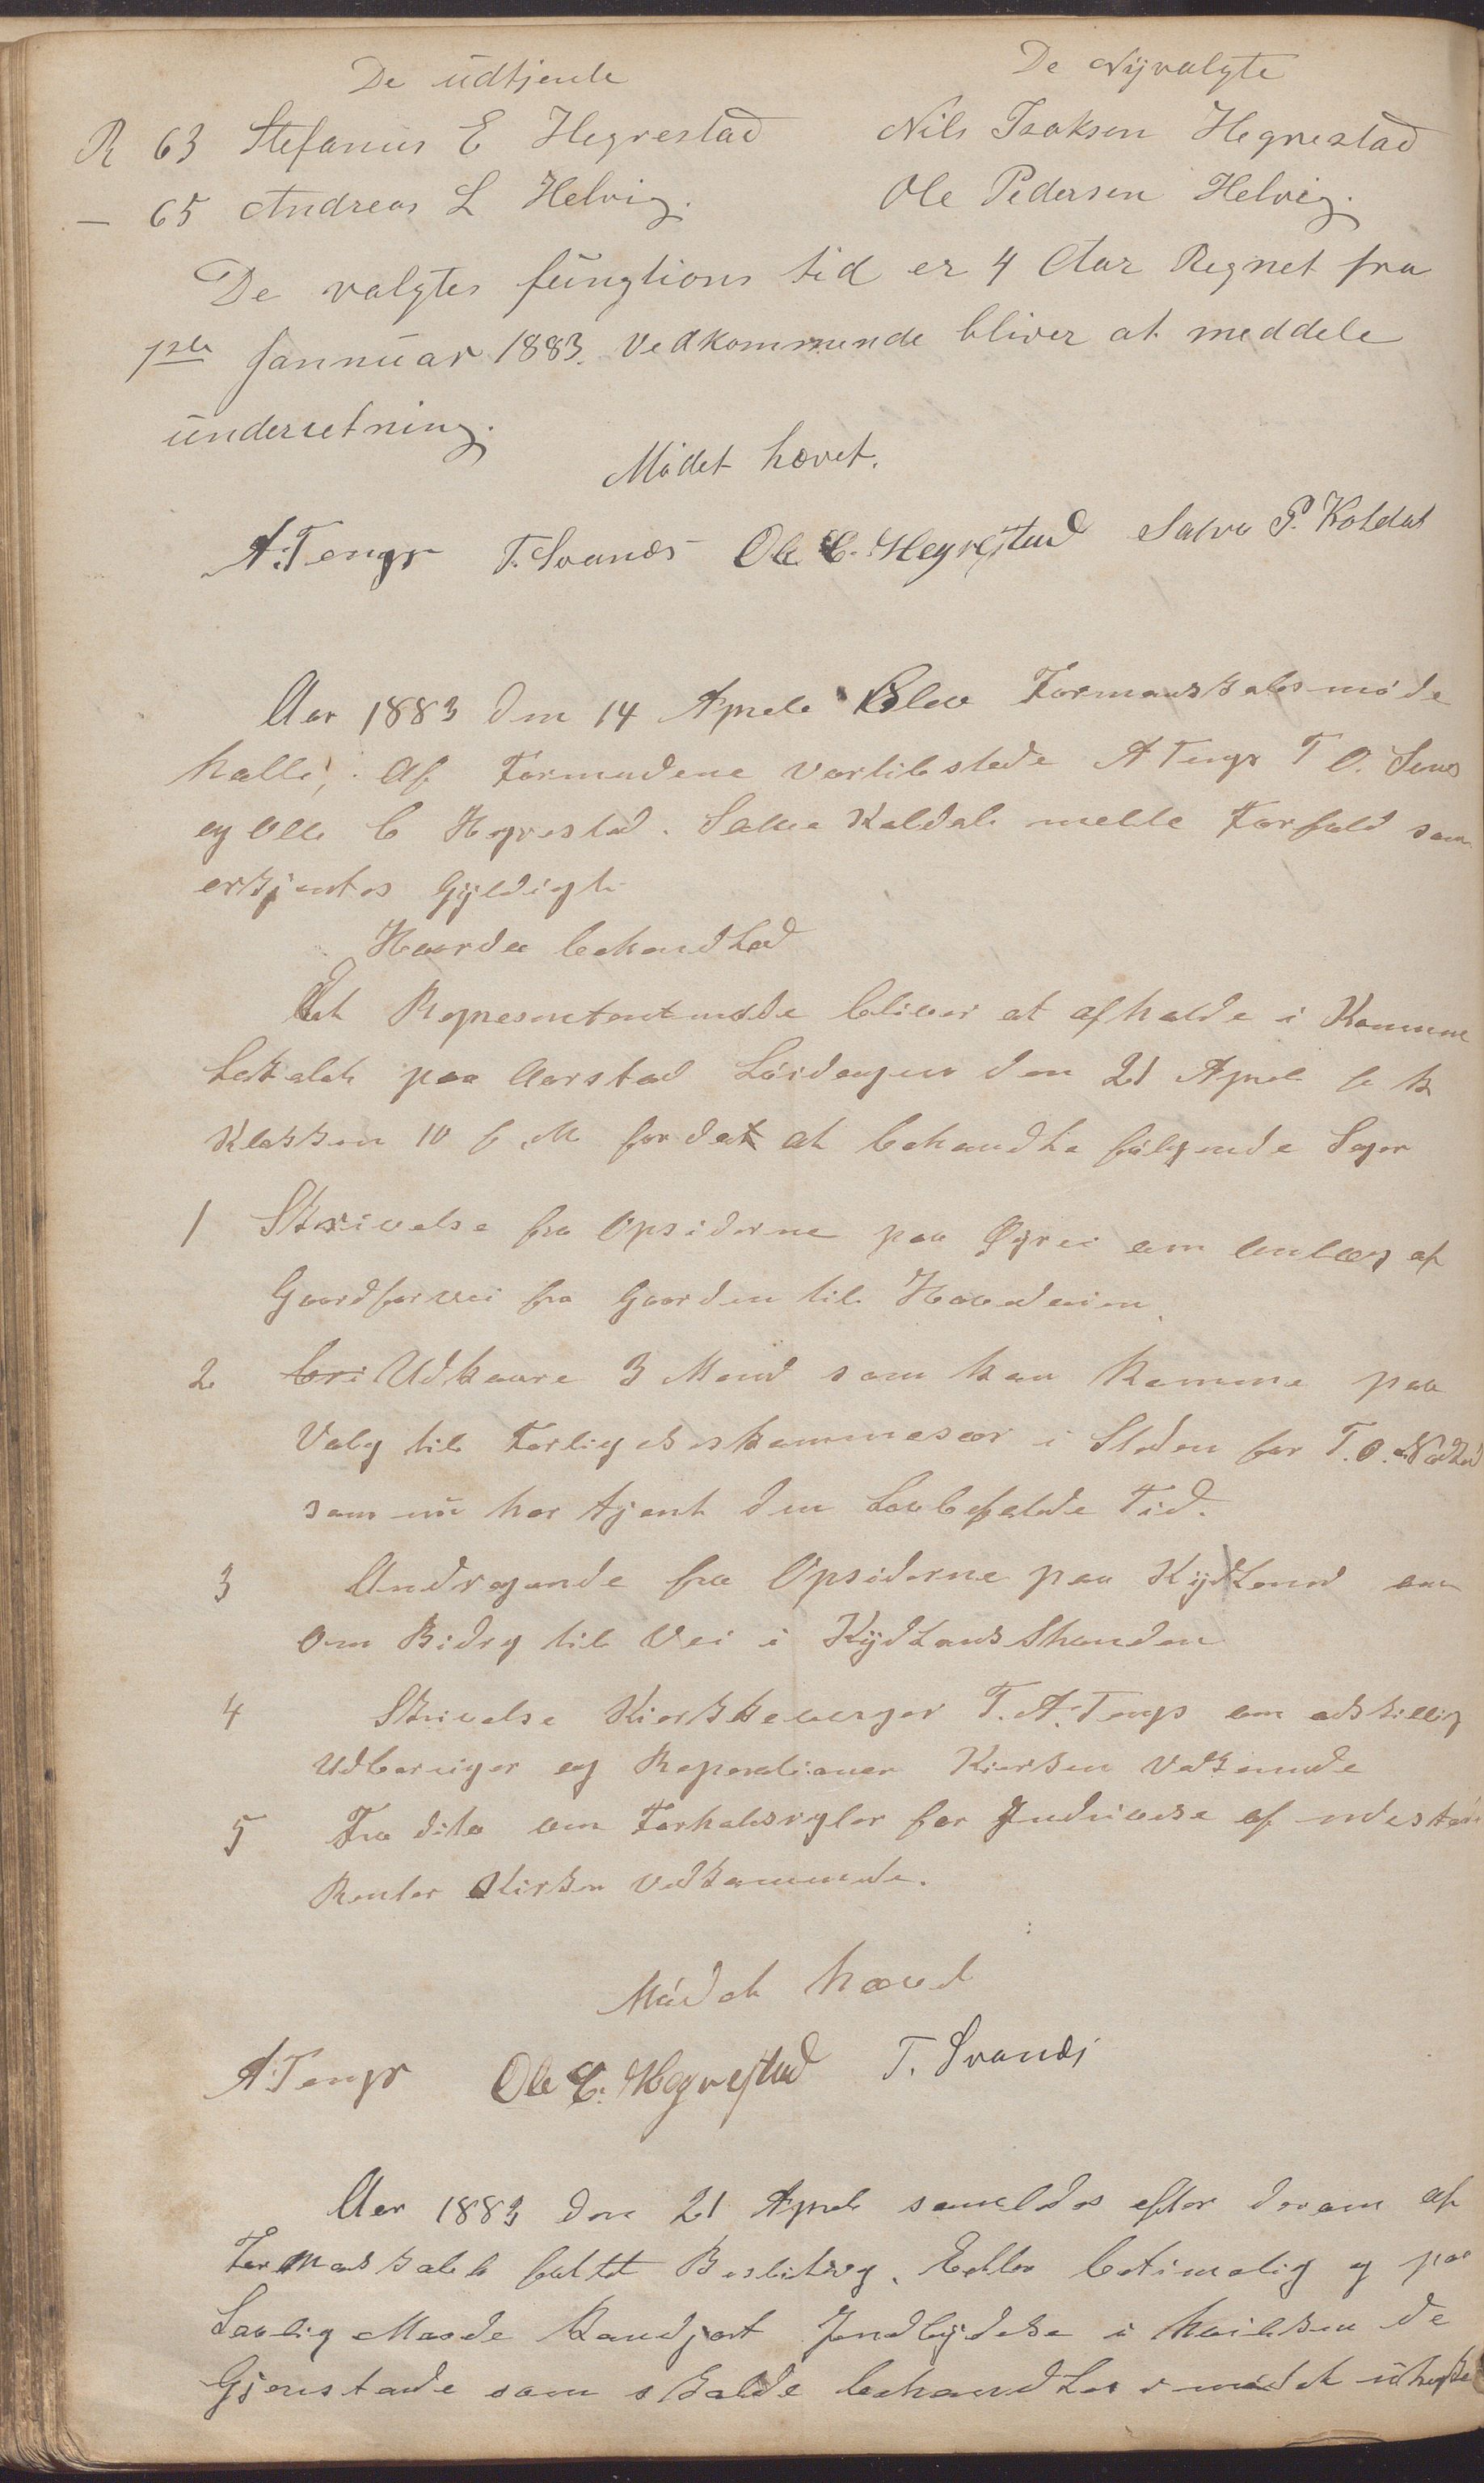 De udtjente De Nyvalgte
R 63 Stefanus E Hegrestad Nils Isaksen Hegrestad
— 65 Andreas L Helvig. Ole Pedersen Helvig.
De valgtes fungtions tid er 4 Aar Regnet fra
1ste Jannuar 1883. Vedkommende bliver at meddele
underretning.
Mödet hævet.
A. Tengs T. Svanes Ole C. Hegrestad Salve P. Koldal
Aar 1883 den 14 Aprel Blev Formanskabsmøde
holt, Af Formendene vartilstede A Tengs T O. Svanes
og Olle C Hegrestad. Salve Koldal melte Forfald som
erkjentes Gyldigt
Hvorda behandlad
Et Represententmøde bliver at afholde i Kommune
Lokalet paa Aarstad Lördagen den 21 Aprel
Klokken 10 f M for det at behandle fölgende Sager
1 Skrivelse fra Opsiderne paa Øgrei om anlæg af
Gaardfarvei fra Gaarden til Hovedveien.
2 Udkaare 3 Mend som kan komme paa
Valg til Forligelseskommesær i Steden for T. O.
som nu har tjent den Lovbefalde Tid.
3 Andragende fra Opsiderne paa Kydland om
Om Bidrg til Vei i Kydlands Skanden
4 Skrivelse Kierkeverger T. A. Tengs om adskillig
Udbersiger og Reperationer Kierken Vedkomende
5 Fra dito om Forholdsregler for Inddrivelse af udestaa
Renter Kirken Vedkommende.
Mödet hævet
A. Tengs Ole C. Hegrestad T. Svanes
Aar 1883 den 21 Aprel samledes efter derom af
Formanskabet fattet Beslutning, Efter betimelig og paa
Lovlig Maade Kundjort Indbydelse i hvilken de
Gjenstande som skulde behandles i mödet